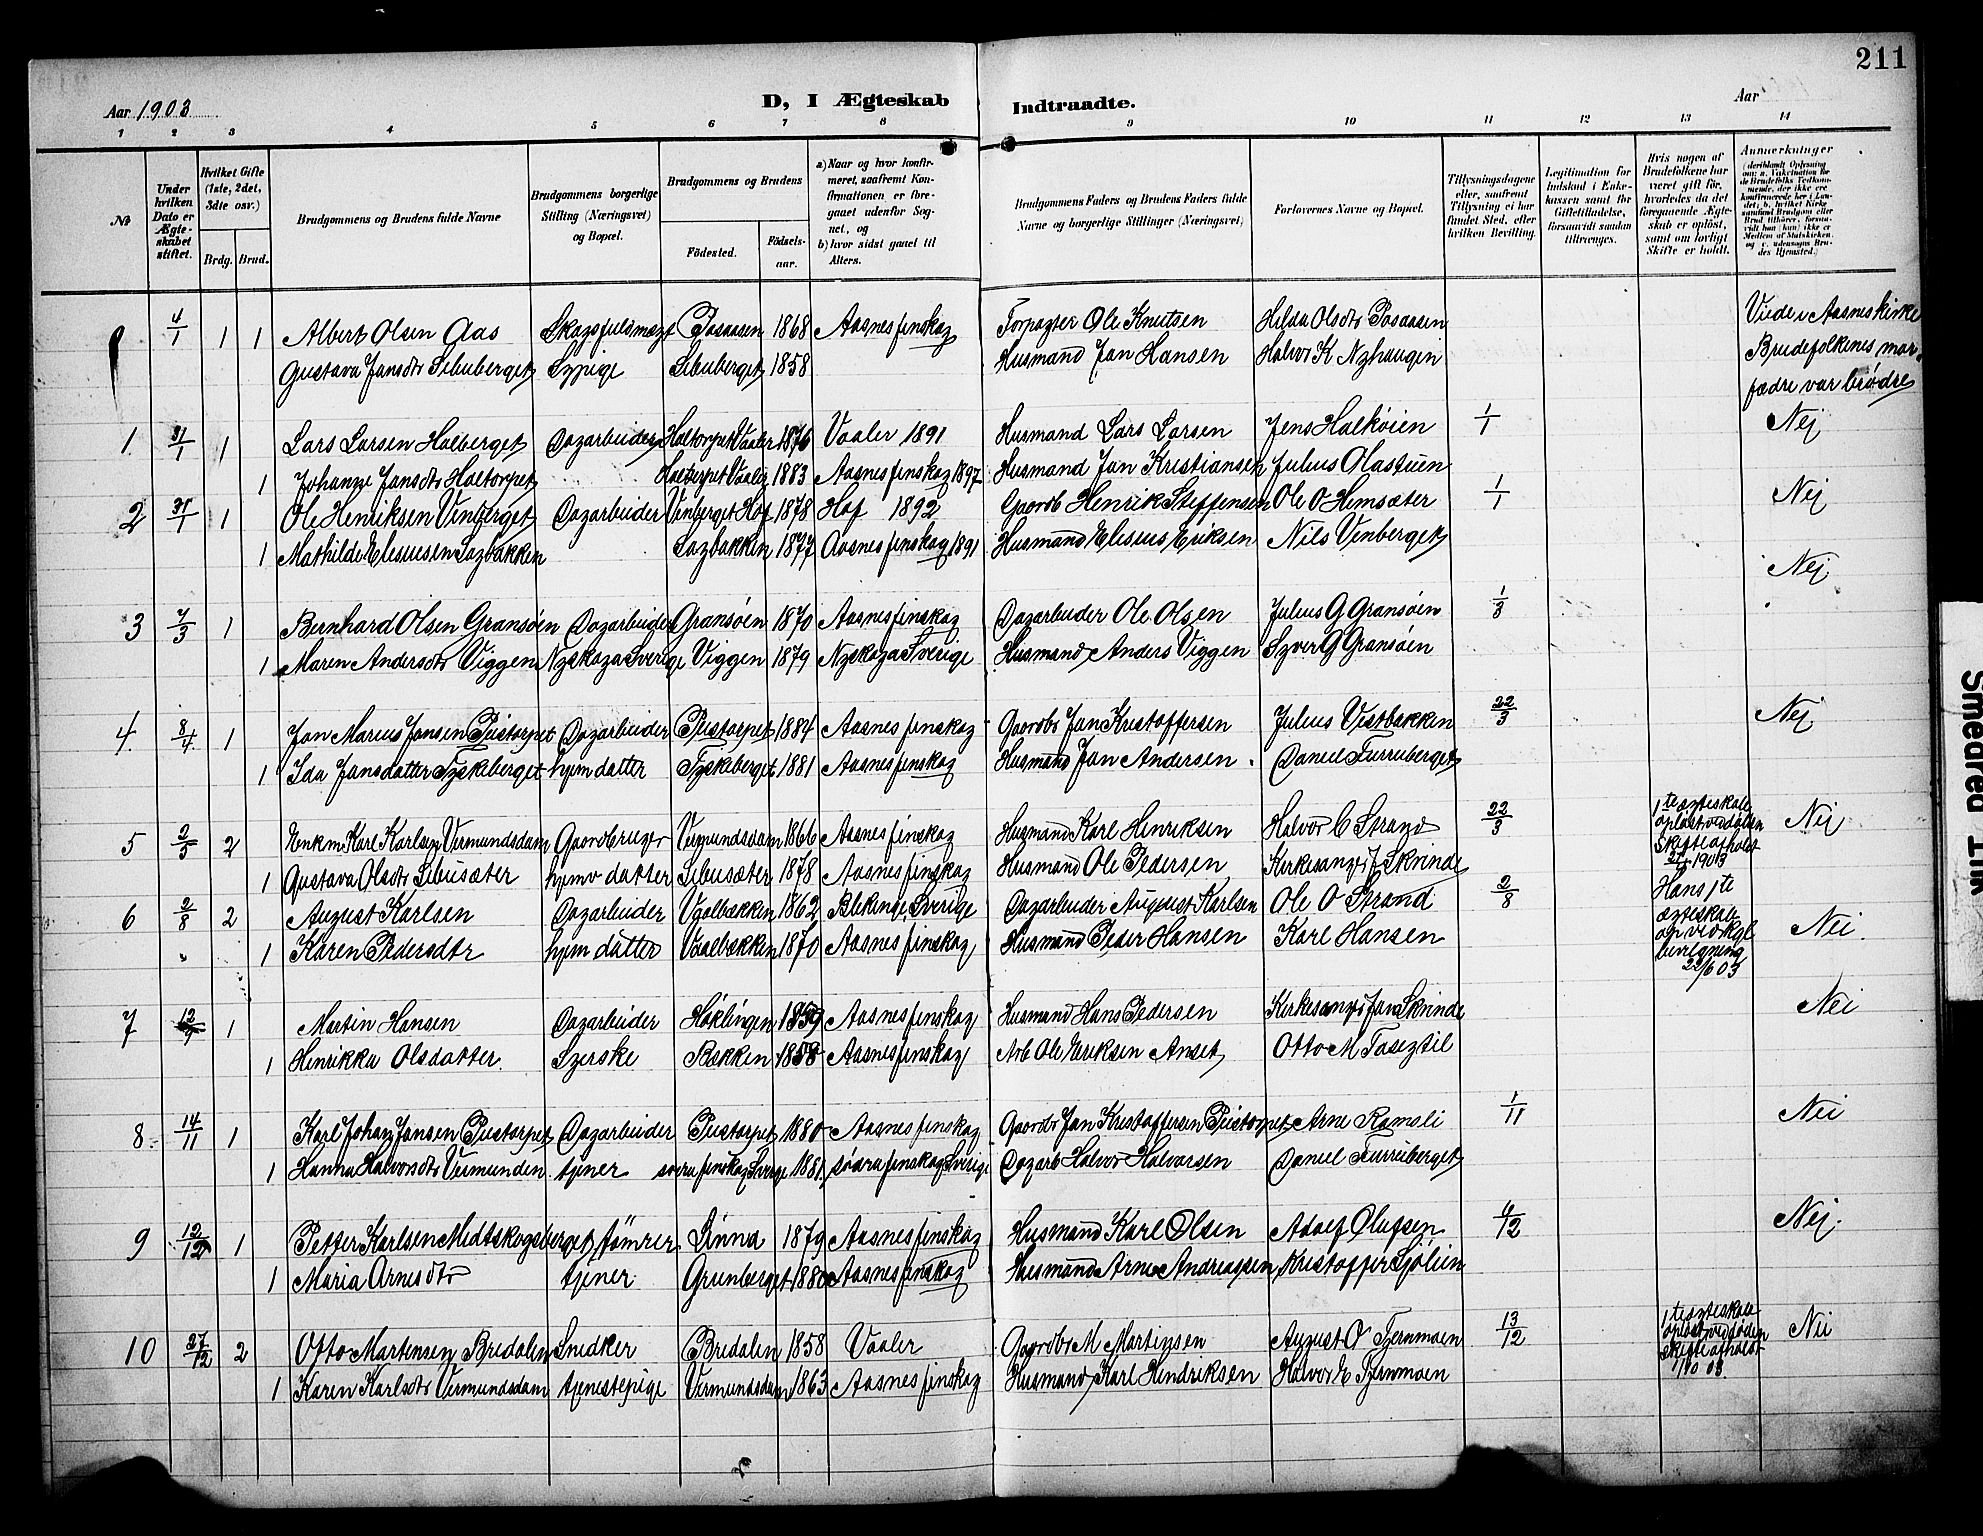 211
Aar 1903 D, I Ægteskab Indtraadte. Aar
1 2 3 4 5 6 7 8 9 10 11 12 13 14
№
Under hvilken Dato er Ægteskabet stiftet.
Hvilket Gifte (1ste, 2det, 3die osv.)
Brdg. Brud.
Brudgommens og Brudens fulde Navne
Brudgommens borgerlige Stilling (Næringsvei) og Bopæl.
Brudgommens og Brudens
Fødested. Fødselsaar.
a) Naar og hvor konfirmeret, saafremt Konfirmationen er foregaaet udenfor Sognet, og
b) hvor sidst gaaet til Alters.
Brudgommens Faders og Brudens Faders fulde Navne og borgerlige Stillinger (Næringsvei)
Forlovernes Navne og Bopæl.
Tillysningsdagene eller, saafremt Tillysning ei har fundet Sted, efter hvilken Bevilling.
Legitimation for Indskud i Enkekassen samt for Giftetilladelse, forsaavidt saadan tiltrænges.
Hvis nogen af Brudefolkene har været gift før, hvorledes da det foregaaende Ægteskab er opløst, samt om lovligt Skifte er holdt.
Anmerkninger
4/1 1 1 Albert Olsen Aas Skogsfuldmægt Posaasen 1868 Aasnes finskog Forpagter Ole Knutsen Hilda Olsdtr Posaasen Viede i Aasnes kirke
Gustava Jansdtr Sibuberget Sypige Sibuberget 1858 Husmand Jan Hansen Halvor K Nyhaugen Brudefolkenes mor-
fædre var brødre
1. 31/1 1 Lars Larsen Halberget Dagarbeider Haltorpet Vaaler 1876 Vaaler 1891 Husmand Lars Larsen Jens Halkøien 1/1 Nej
1 Johanne Jansdtr Haltorpet Haltorpet Vaaler 1883 Aasnes finskog 1897 Husmand Jan Kristiansen Julius Olastuen
2 31/1 1 Ole Henriksen Venberget Dagarbeider Venberget Hof 1878 Hof 1892 Gaardb Henrik Steffensen Ole O Hemsæter 1/1 Nej
1 Mathilde Elesiusen Sagbakken Sagbakken 1877 Aasnes finskog 1891 Husmand Elesius Eriksen Nils Venberget
Nej.
3 7/3 1 Bernhard Olsen Gransøen Dagarbeider Gransøen 1870 Aasnes finskog Dagarbeider Ole Olsen Julius G Gransøen 1/3
1 Maren Andersdtr Viggen Nyskoga Sverige Viggen 1879 Nyskoga Sverige Husmand Anders Viggen Syver G Gransøen
4. 8/4 1 Jan Marius Jansen Pustorpet Dagarbeider Pustorpet 1884 Aasnes finskog Gaardbr Jan Kristoffersen Julius Vestbakken 22/3 Nej
1 Ida Jansdatter Tyskeberget hjem datter Tyskeberget 1881 Aasnes finskog Husmand Jan Andersen Daniel Furruberget
5 2/5 2 Enkm Karl Karlsen Vermundsdam Gaardbruger Vermundsdam 1866 Aasnes finskog Husmand Karl Henriksen Halvor C Strand 22/3 1te ægteskab opløst ved døden Skifte afholdt 1903 Nei
1 Gustava Olsdtr Sibusæter hjemv datter Sibusæter 1878 Aasnes finskog Husmand Ole Pedersen Kirkesanger J Skrinde
6 2/8 2 August Karlsen Dagarbeider Vaalbakken 1862 Blekinge Sverige Dagarbeider August Karlsen Ole O Strand 2/8 Hans 1te ægteskab op ved kgl bevilgning 22/6 03 Nei.
1 Karen Pedersdtr hjem datter Vaalbakken 1870 Aasnes finskog Husmand Peder Hansen Karl Hansen
7 12 1 Martin Hansen Dagarbeider Høklingen 1859 Aasnes finskog Husmand Hans Pedersen Kirkesanger Jan Skrinde Nei
1 Henrikka Olsdatter. Syerske Bakken 1858 Aasnes finskog Arb Ole Eriksen Anset Otto M Fasegtil
8. 14/11 1 Karl Johan Jansen Pustorpet Dagarbeider Pustorpet 1880 Aasnes finskog Gaardbr Jan Kristoffersen Pustorpet Arne Ramsli 1/11 Nei
1 Hanna Halvorsdtr Vermunden. tjener södra finskog Sverige 1881 södra finskog Sverige Dagarb Halvor Halvorsen Daniel Furruberget
9 12/12 1 Petter Karlsen Midtskogsberget tømrer Linna 1879 Aasnes finskog Husmand Karl Olsen Adolf Olufsen 6/12 Nej.
1 Maria Arnesdtr tjener Grunberget 1880 Aasnes finskog Husmand Arne Andreassen Kristoffer Sjølien
10 27/12 2 Otto Martensen Bredalen Snedker Bredalen 1858 Vaaler Gaardbr M Martinsen August O Tjernmoen 13/12 1te ægteskab opløst ved døden skifte afholdt 1/10 03. Nei
1 Karen Karlsdtr Vermundsdam tjenestepige Vermundsdam 1863 Aasnes finskog Husmand Karl Hendriksen Halvor E Tjernmoen
Smedred Tilk